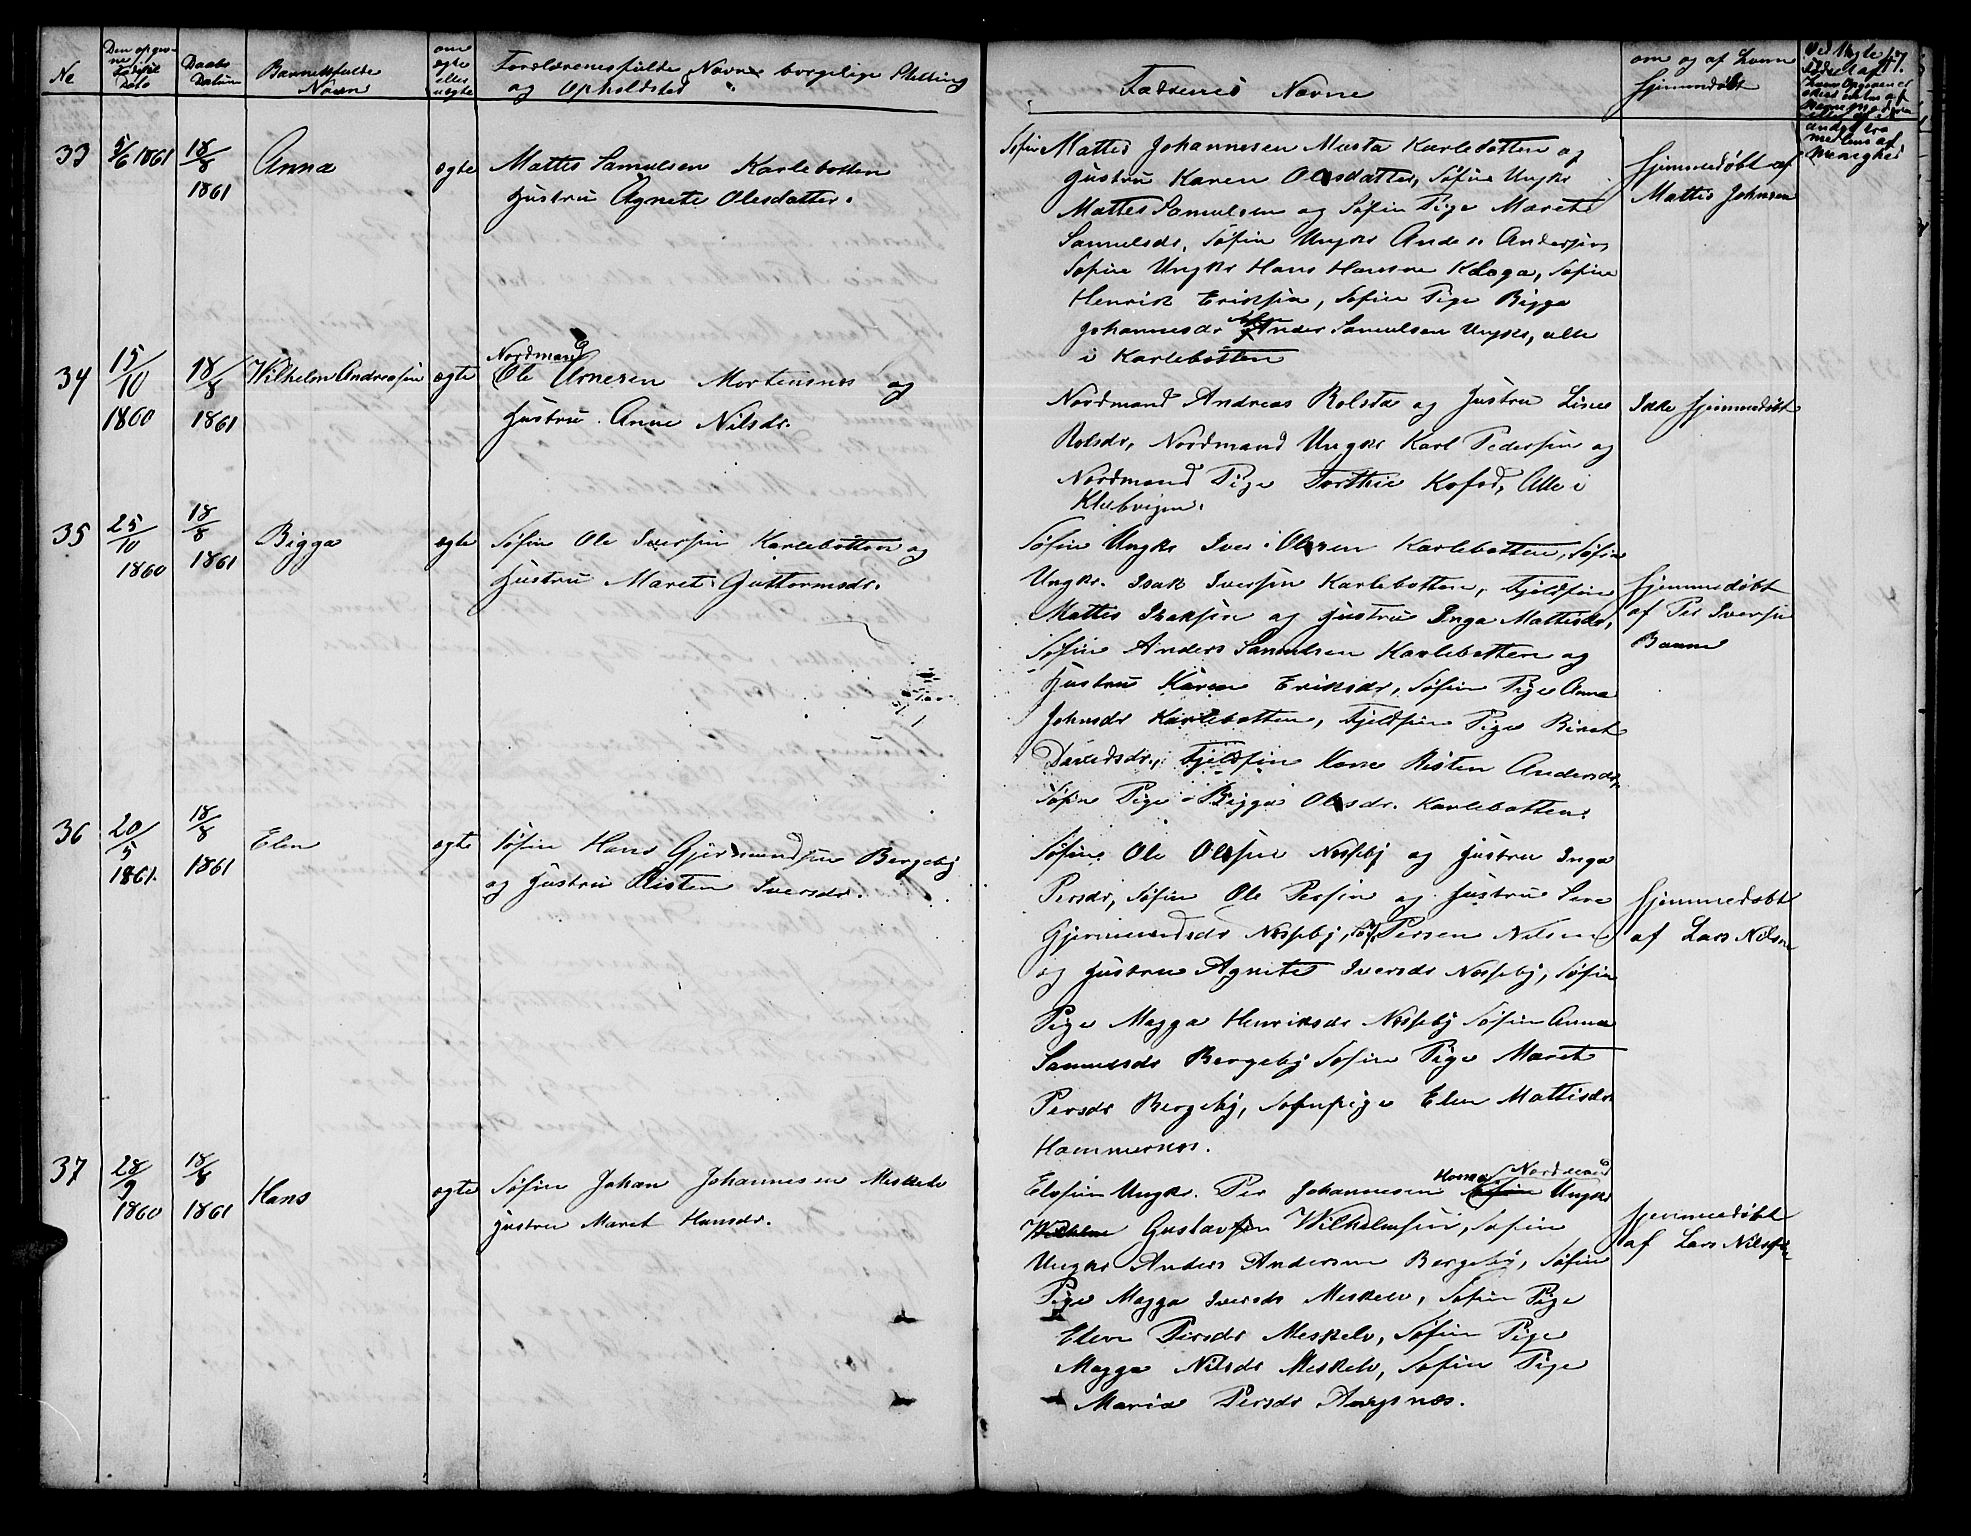 No
Den opgivne Fødsels Dato
Daabs Datum
Barnets fulde Navn
om ægte eller uægte
Forældrenes fulde Navne borgelige Stilling
og Opholdsted
Faddernes Navne
om og af hvem
hjemmedøbt
33 5/6 1861 18/8 1861 Anna ægte
Mattis Samulsen Karlebotten
Hustru Agnete Olesdatter.
Søfin Mattis Johannesen Musta Karlebotten og
Hustru Karen Olsdatter, Søfin Ungkr
Mattes Samulsen og Søfin Pige Maret
Samuelsdr, Søfin Ungkr Anders Andersen
Søfin Ungkr Hans Hansen Kloga, Søfin
Henrik Eriksen, Søfin Pige Bigga
Johannesdr Anders Samulsen Ungkr, alle
i Karlebotten
hjemmedøbt af
Mattis Johnsen
34 15/10 1860 18/8 1861 Wilhelm Andreasen ægte
Nordmand
Ole Arnesen Mortensnes og
Hustru Anne Nilsdr.
Nordmand Andreas Rolsta og Hustru Lisne
Rolsdr, Nordmand Ungkr Karl Pedersen og
Nordmand Pige Dorthie Kofod, Alle i
Klubvigen.
Ikke hjemmedøbt
35 25/10 1860 18/8 1861 Bigga ægte
Søfin Ole Iversen Karlebotten og
Hustru Maret Guttormsdr.
Søfin Ungkr Iver Olsen Karlebotten, Søfin
Ungkr. Isak Iversen Karlebotten, Fjeldfin
Mattis Isaksen og Hustru Inga Mattisdr,
Søfin Anders Samulsen Karlebotten og
Hustru Karen Eriksdr, Søfin Pige Anna
Johnsdr Karlebotten, Fjeldfin Pige Biret
Davidsdr, Fjeldfin Kone Risten Andersdr,
Søfin Pige Bigga Olsdr. Karlebotten.
hjemmedøbt
af Per Iversen
36 20/5 1861 18/8 1861 Elen ægte
Søfin Hans Gjermundsen Bergeby
og Hustru Risten Iversdr.
Søfin Ole Olsen Nesseby og Hustru Inga
Persdr, Søfin Ole Persen og Hustru Sara
Gjermundsdr Nesseby, Søf. Persen Nilsen
og Hustru Agnete Iversdr Nesseby, Søfin
Pige Magga Henriksdr Nesseby Søfin Anna
Samuelsdr Bergeby Søfin Pige Maret
Persdr Bergeby, Søfinpige Elen Mattisdr
Hammernes.
hjemmedøbt
af Lars Nilsen
37 28/9 1860 18/8 1861 Hans ægte
Søfin Johan Johannesen Meskelv
Hustru Maret Hansdr.
Elvfin Ungkr. Per Johannesen Nordmand Ungkr
Gustav Wilhelmsen, Søfin
Ungkr Anders Andersen Bergeby, Søfin
Pige Magga Iversdr Meskelv, Søfin Pige
Elen Persdr Meskelv, Søfin Pige
Magga Nilsdr Meskelv, Søfin Pige
Maria Persdr Angsnes.
hjemmedøbt
af Lars Nilsen